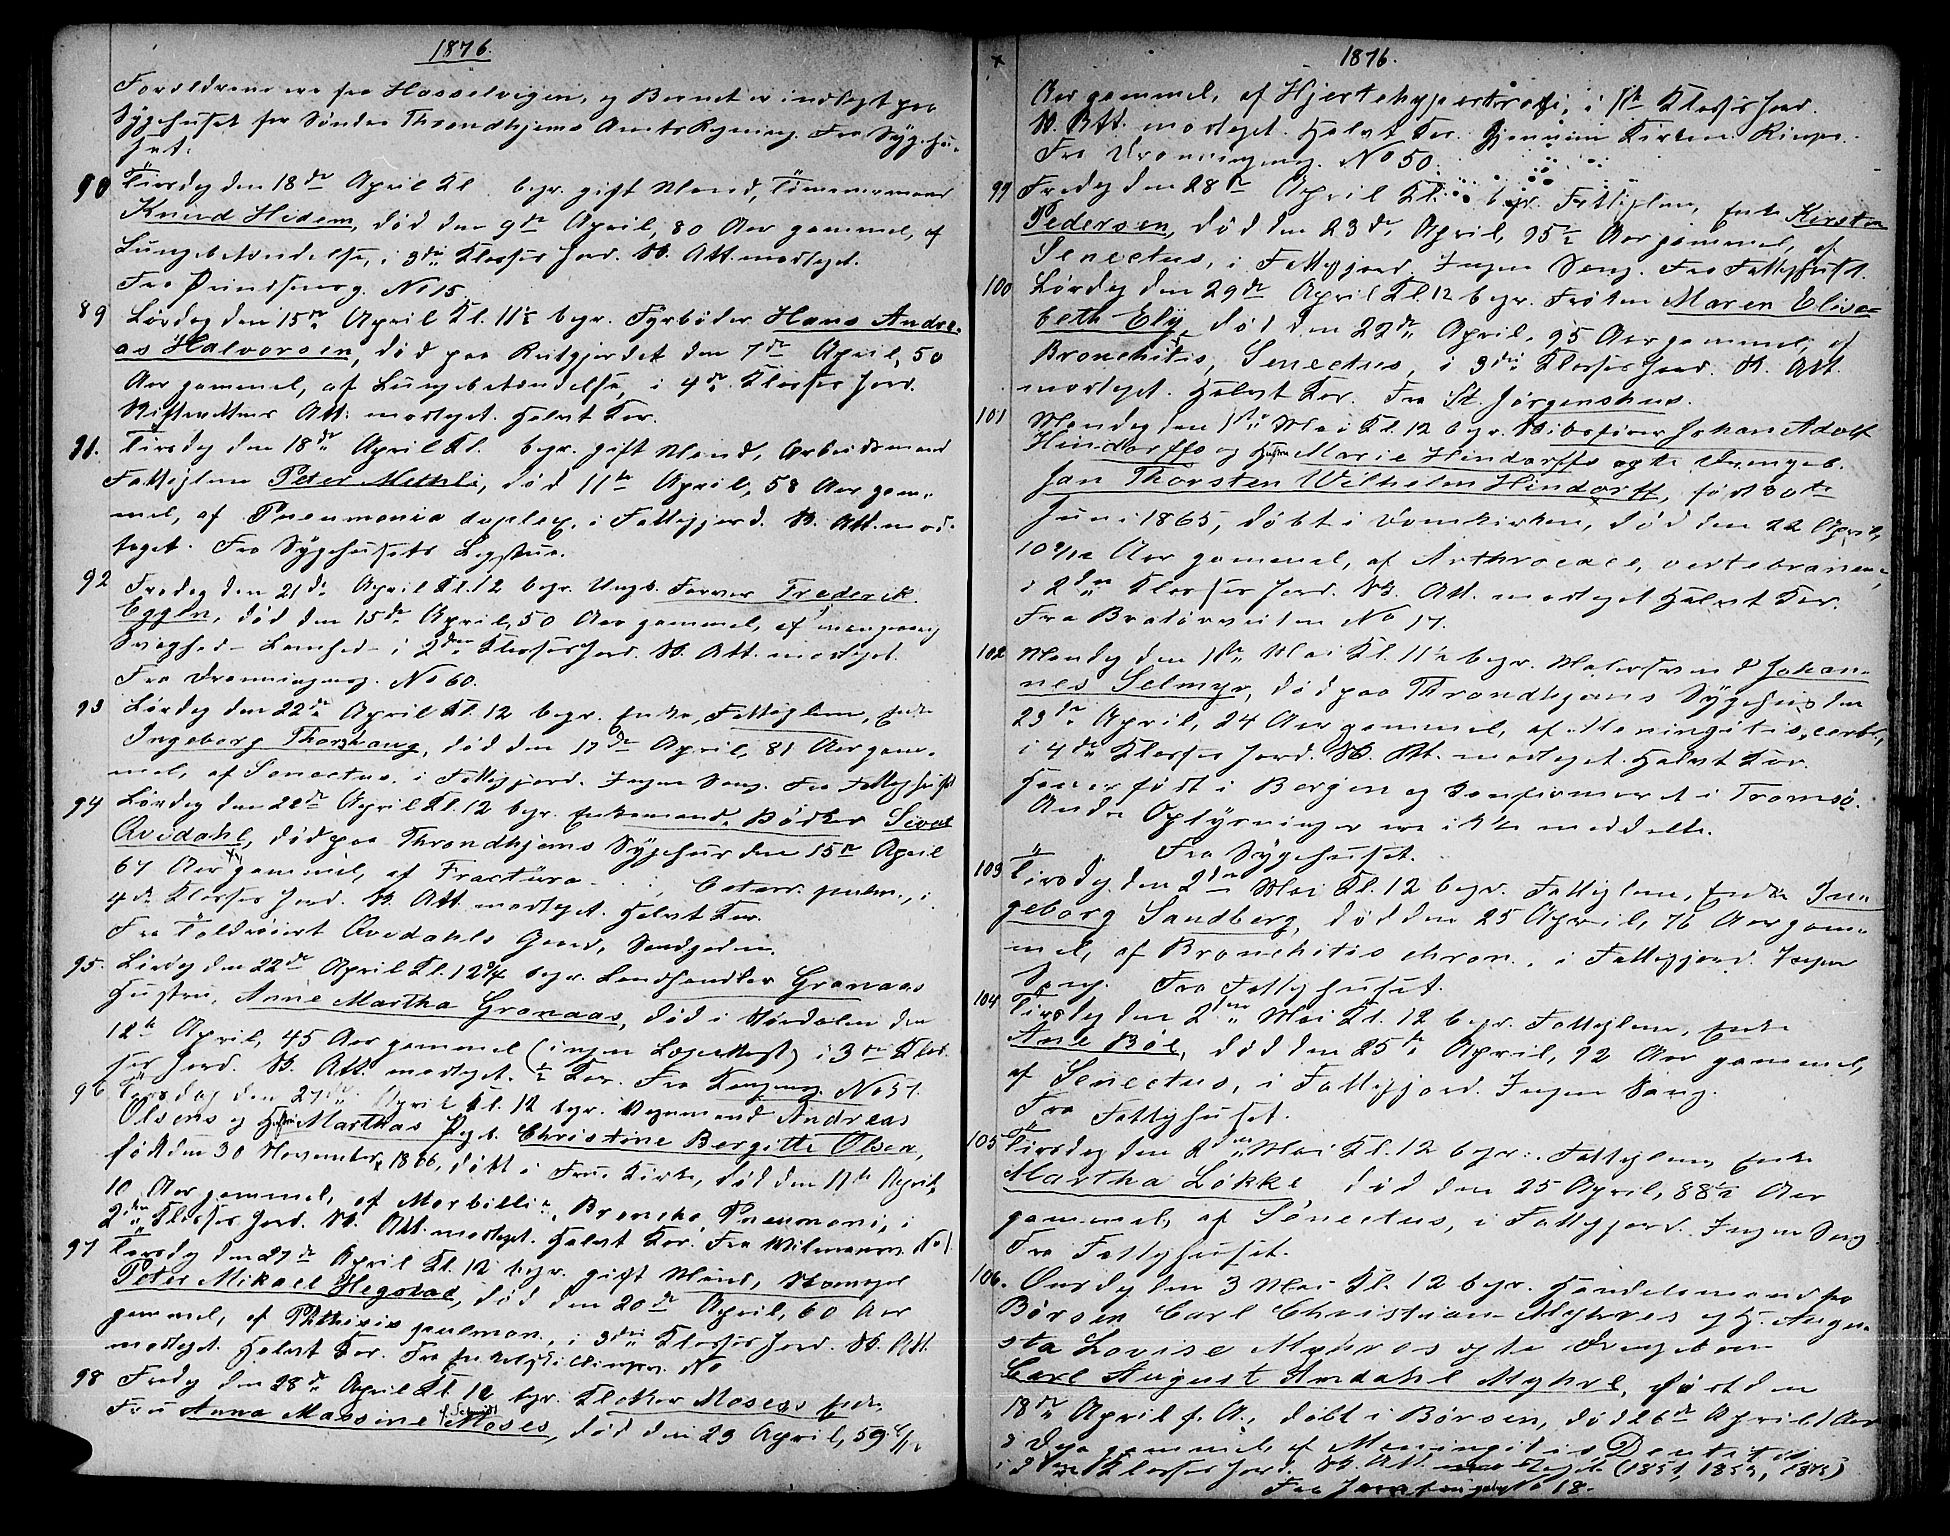 1876.
Forældrene ere fra Hasselvigen, og Barnet er indlagt paa
Sygehuset for Søndre Throndhjems Amts Regning. Fra Sygehu-
set.
90 Tirsdag den 18de April Kl. begr. gift Mand, Tømmermand
Knud Hidem, død den 9de April, 80 Aar gammel, af
Lungebetændelse, i 3die Klasses Jord. Sk. Att. modtaget.
Fra Prindsensg. No 15.
89 Lørdag den 15de April Kl. 11½ begr. Fyrbøder Hans Andre-
as Halvorsen, død paa Reitgjerdet den 7de April, 50
Aar gammel, af Lungebetændelse, i 4de Klasses Jord.
Skifterettens Att. modtaget. Halvt Kor.
91. Tirsdag den 18de April Kl. begr. gift Mand, Arbeidsmand
Fattiglem Peter Methli, død 11te April, 58 Aar gam-
mel, af Pneumonia duplex, i Fattigjord. Sk. Att. mod-
taget. Fra Sygehusets Ligstue.
92 Fredag den 21de April Kl. 12 begr. Ungk. Farver Frederik
Eggen, død den 15de April, 50 Aar gammel, af mangeaarig
Svaghed - Lamhed - i 2den Klasses Jord. Sk. Att. modtaget.
Fra Dronningensg. No 60.
93 Lørdag den 22de April Kl. 12 begr. Enke, Fattiglem, Enke
Ingeborg Thorshaug, død den 17de April, 81 Aar gam-
mel, af Senectus, i Fattigjord. Ingen Sang. Fra Fattighuset
94 Lørdag den 22de April Kl. 12 begr. Enkemand, Bødker Sivert
Qvidahl, død paa Throndhjems Sygehus den 15de April
67 Aar gammel, af Fractura Catarr. pulm., i
4de Klasses Jord. Sk. Att. modtaget. Halvt Kor.
Fra Toldvisiert Qvidahls Gaard, Sandgaden.
95. Lørdag den 22de April Kl. 12¾ begr. Landhandler Granaas
Hustru, Anne Martha Granaas, død i Værdalen den
12te April, 45 Aar gammel (ingen Lægeattest) i 3die Klas-
ses Jord. Sk. Att. modtaget. ½ Kor. Fra Kongensg. No 51.
96 Torsdag den 27de April Kl. 12 begr. Vognmand Andreas
Olsens og Hustru Marthas Pigeb. Christine Bergitte Olsen,
født den 30 November 1866, døbt i Frue Kirke, død den 17de April,
10 Aar gammel, af Morbilli, Broncho, Pneumoni, i
2den Klasses Jord. Sk. Att. modtaget. Halvt Kor. Fra Wilmanns No 1.
97 Torsdag den 27de April Kl. 12 begr. gift Mand,
Peter Mikael Hegstad, død den 20de April, 60 Aar
gammel, af Phthisis pulmon., i 3die Klasses Jord. Sk. Att.
modtaget. Halvt Kor. Fra No
98 Fredag den 28de April Kl. 12 begr. Klokker Moses's Enke
Fru Anna Massine f. Schmidt Moses, død den 23 April, 59
1876.
Aar gammel, af Hjertehypertrofi, i 1ste Klasses Jord.
Sk. Att. modtaget. Halvt Kor. Gjennem Kirken. Ringn.
Fra Dronningensg. No 50.
99 Fredag den 28de April Kl. begr. Fattiglem, Enke Kirsten
Pedersen, død den 23de April, 95½ Aar gammel, af
Senectus, i Fattigjord. Ingen Sang. Fra Fattighuset.
100 Lørdag den 29de April Kl. 12 begr. Frøken Maren Elisa-
beth Ely, død den 22de April, 95 Aar gammel, af
Bronchitis, Senectus, i 3die Klasses Jord. Sk. Att.
modtaget. Halvt Kor. Fra St. Jørgenshus.
101 Mandag den 1ste Mai Kl. 12 begr. Skibsfører Johan Adolf
Hindorffs og Hustru Marie Hindorffs ægte Drengeb.
Jan Thorsten Wilhelm Hindorff, født 30te
Juni 1865, døbt i Domkirken, død den 22 April,
10 9/12 Aar gammel, af Arthrocace, vertebrarum,
i 2den Klasses Jord. Sk. Att. modtaget Halvt Kor.
Fra Bratørveiten No 17.
102 Mandag den 1ste Mai Kl. 11½ begr. Malersvend Johan-
nes Selmyr, død paa Throndhjems Sygehus den
23de April, 24 Aar gammel, af Meningitis, cerbr.,
i 4de Klasses Jord. Sk. Att. modtaget. Halvt Kor.
Han er født i Bergen og konfirmeret i Tromsø.
Andre Oplysninger ere ikke meddelte.
Fra Sygehuset.
103 Tirsdag den 2den Mai Kl. 12 begr. Fattiglem, Enke In-
geborg Sandberg, død den 25 April, 76 Aar gam-
mel, af Bronchitis chron., i Fattigjord. Ingen
Sang. Fra Fattighuset.
104 Tirsdag den 2den Mai Kl. 12 begr. Fattiglem, Enke
Ane Böe, død den 25te April, 92 Aar gammel,
af Senectus, i Fattigjord. Ingen Sang.
Fra Fattighuset.
105 Tirsdag den 2den Mai Kl. 12 begr. Fattiglem, Enke
Martha Løkke, død den 25 April, 88½ Aar
gammel, af Senectus, i Fattigjord. Ingen Sang
Fra Fattighuset.
106. Onsdag den 3 Mai Kl. 12 begr. Handelsmand fra
Børsen Carl Christian Myhres og H. Augu-
sta Lovise Myhres ægte Drengebarn
Carl August Andahl Myhre, født den
18de April f. A., døbt i Børsen, død 26de April, 1 Aar
8 Dge gammel, af Meningitis, Dentitio,
i 2den Klasses Jord. Sk. Att. modtaget (1851, 1854, 1875)
Fra No 18.